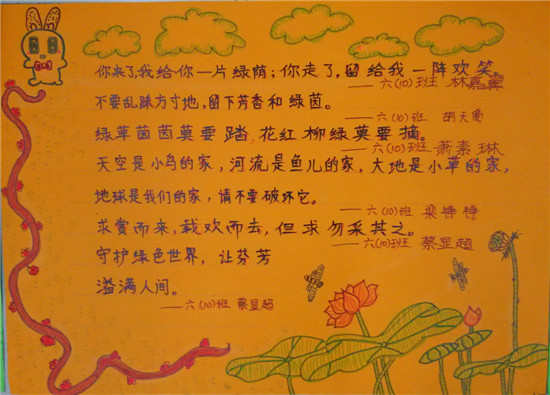 你来了,我给你一片绿荫;你走了,留给我一阵欢笑。
——六(10)班 林嘉
不要乱踩方寸地,留下芳香和绿茵。
——六(10)班 胡天爱
绿草茵茵莫要踏,花红柳绿莫要摘。
——六(10)班 萧素琳
天空是小鸟的家,河流是鱼儿的家,大地是小草的家,
地球是我们的家,请不要破坏它。
——六(10)班 梁
求赏而来,载欢而去,但求勿采其之。
——六(10)班 蔡显超
守护绿色世界,让芬芳
溢满人间。
——六(10)班 蔡显超